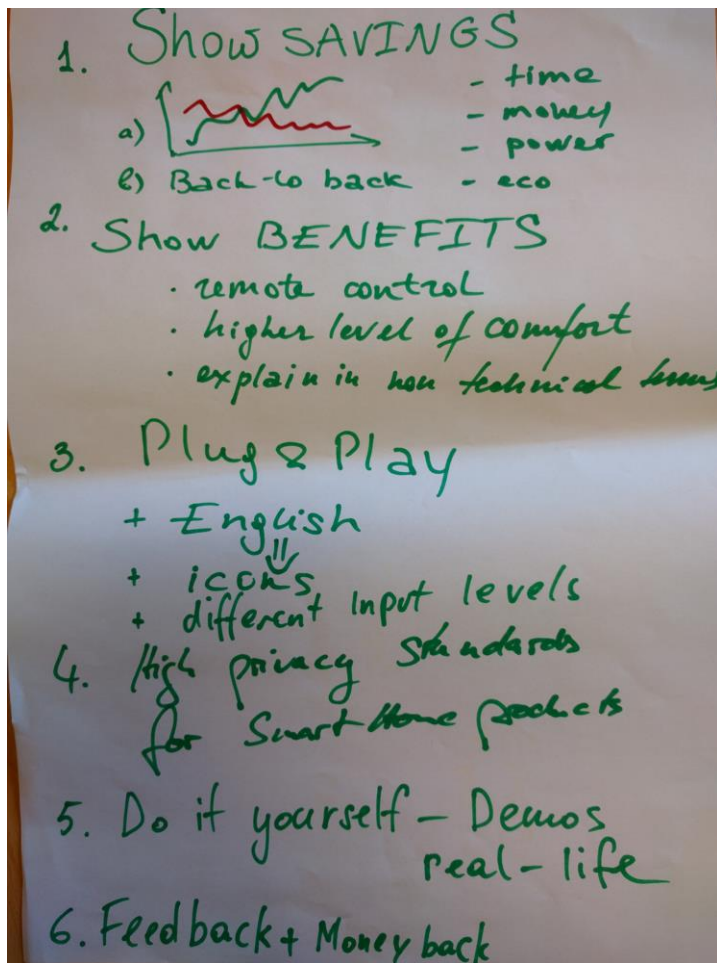 1. Show SAVINGS
- time
- money
a)
- power
b) Back-to back - eco
2. Show BENEFITS
· remote control
· higher level of comfort
· explain in non technical terms
3. Plug & Play
+ English
+ icons
+ different Input levels
4. High privacy standards
for Smart Home products
5. Do it yourself - Demos
real-life
6. Feedback + Money back